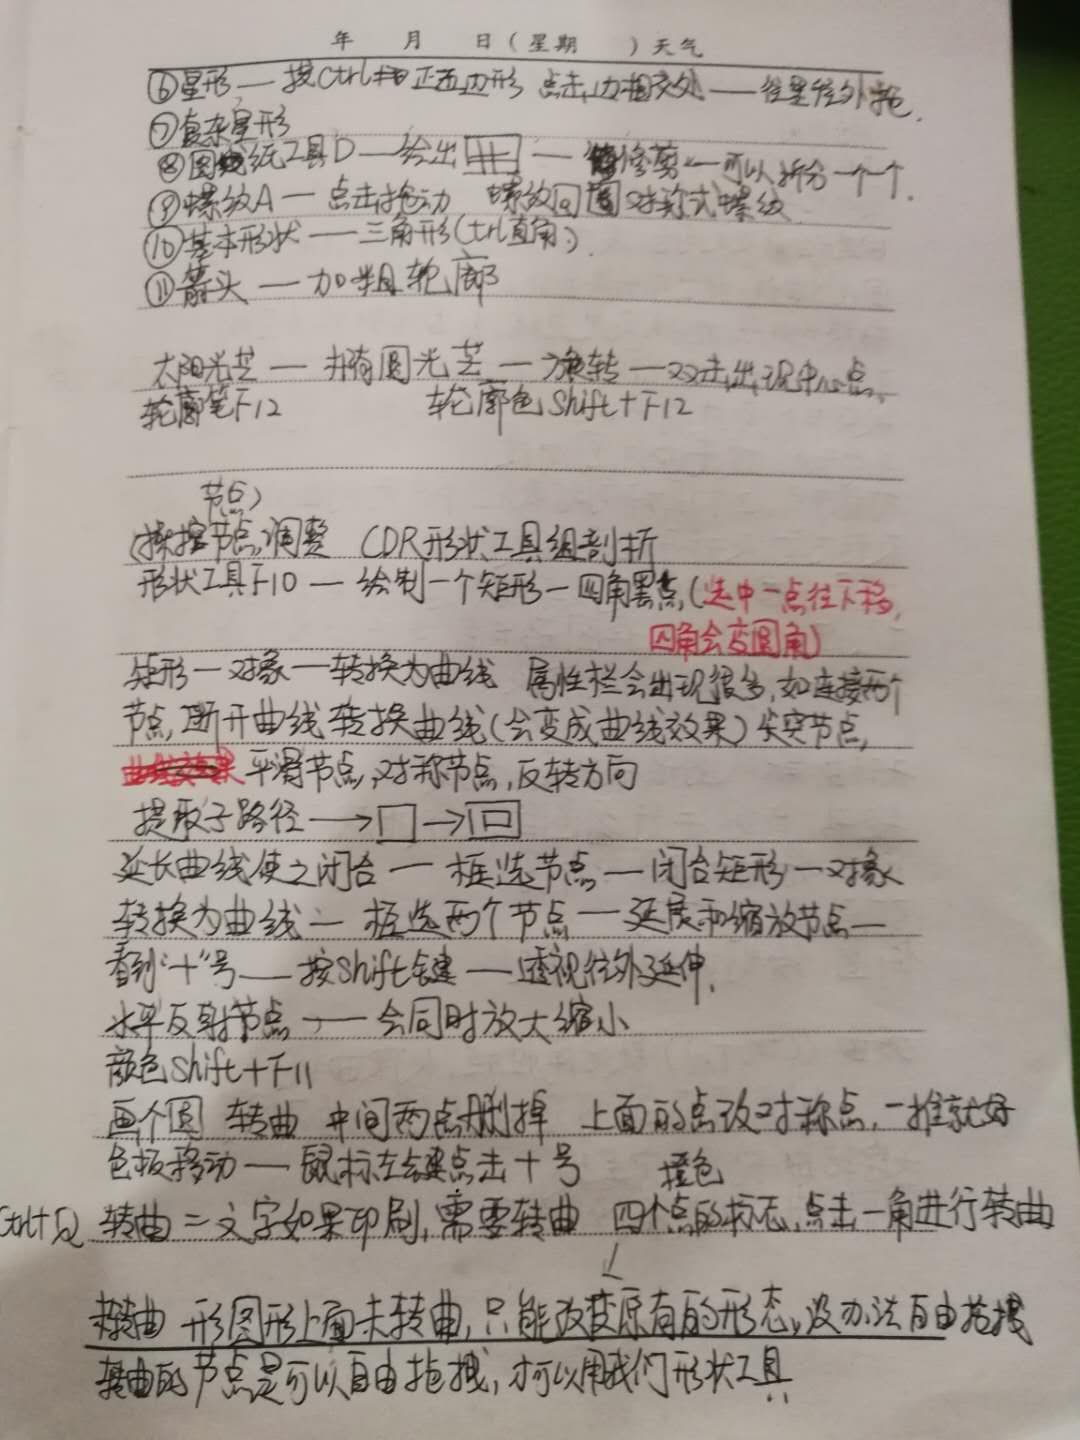 年 月 日(星期 )天气
⑥星形一按Ctrl 正五边形 点击边相交处——往里往外拖.
⑦复杂星形
⑧图纸工具D—绘出 — 修剪—可以拆分一个个.
⑨螺纹A—点击拖动 螺纹回圈 对称式螺纹
⑩基本形状——三角形(Ctrl直角)
⑪箭头 — 加粗轮廓
太阳光芒 — 拥有圆光芒 — 旋转 — 双击出现中心点.
轮廓笔F12 轮廓色Shift+F12
节点
操控节点,调整 CDR形状工具组剖析
形状工具F10 — 绘制一个矩形 — 四角黑点(选中一点往下移,
四角会变圆角)
矩形一对象一转换为曲线 属性栏会出现很多,如连接两个
节点,断开曲线 转换曲线(会变成曲线效果)尖突节点,
平滑节点,对称节点,反转方向
提取子路径 → □ → 回
延长曲线使之闭合 — 框选节点 — 闭合矩形 — 对象
转换为曲线 — 框选两个节点 — 延展和缩放节点—
看到"十"号 — 按Shift键 — 透视往外延伸.
水平反射节点 — 会同时放大缩小
颜色Shift+F11
画个圆 转曲 中间两点删掉 上面的点改对称点,一推就好
色板移动 — 鼠标左键点击十号 橙色
Ctrl+Q 转曲 = 文字如果印刷,需要转曲 四个点的状态,点击一角进行转曲
未转曲 形图形上面未转曲,只能改变原有的形态,没办法自由拖拽
转曲的节点是可以自由拖拽,才可以用我们形状工具